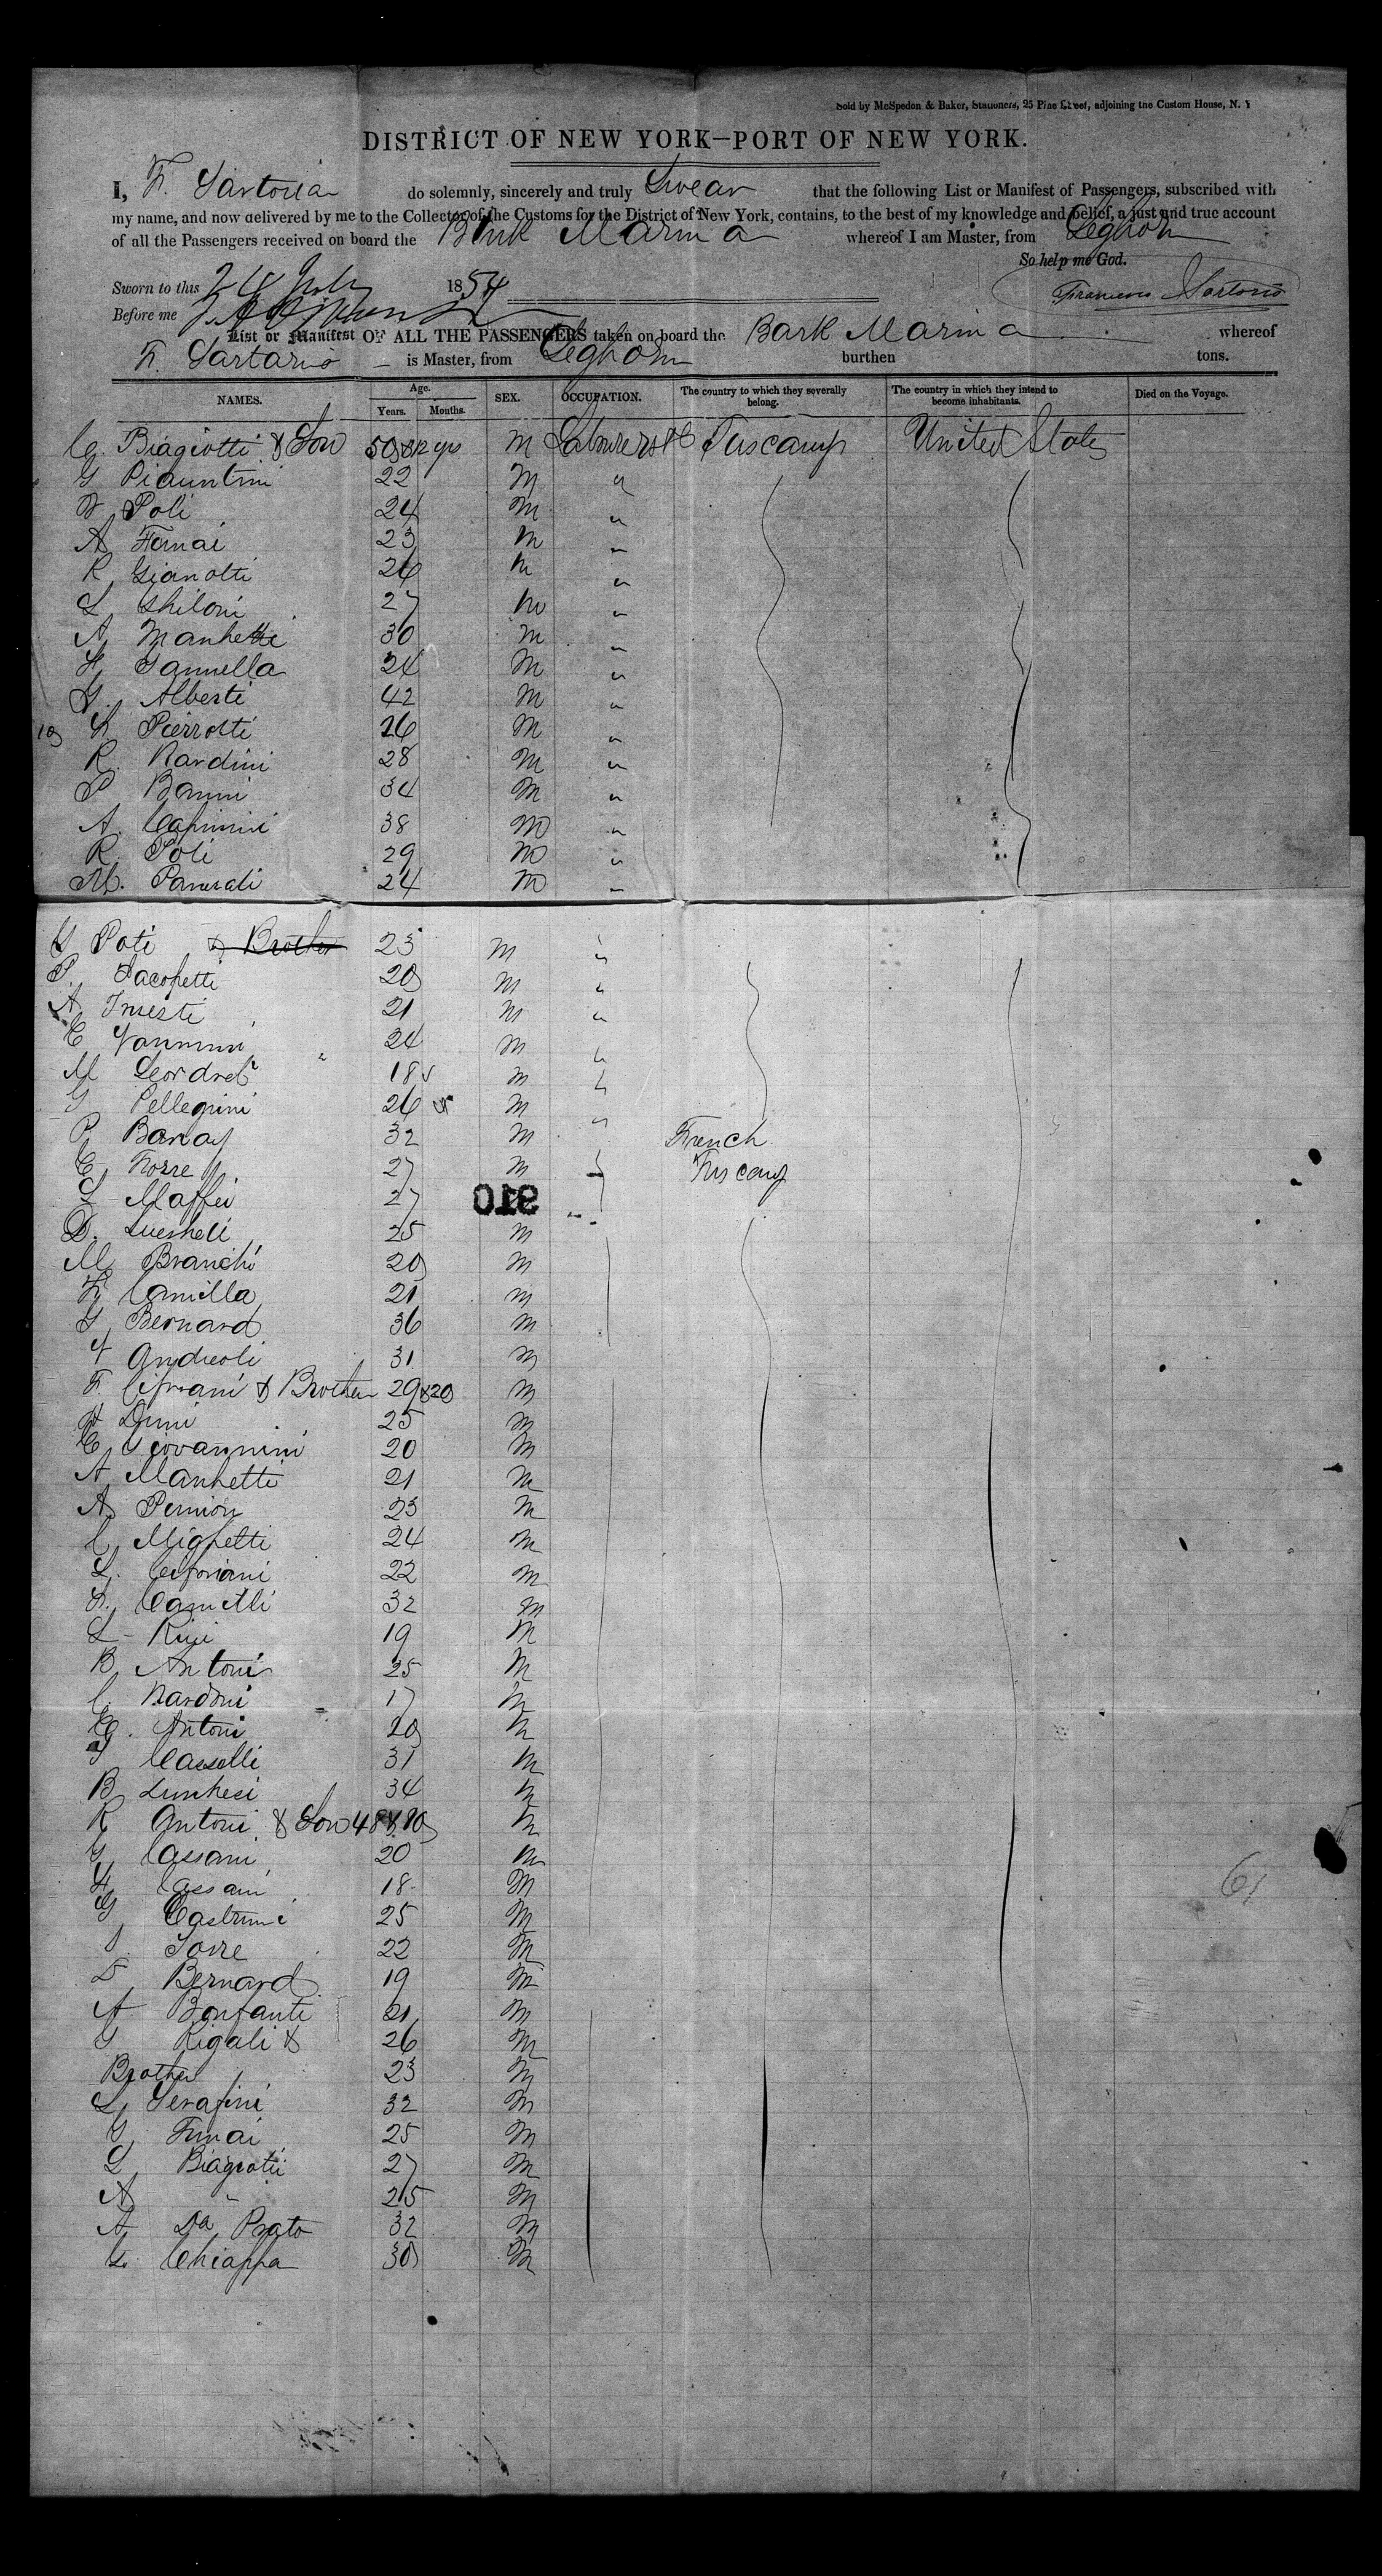 Sold by McSpedon & Baker, Stationers, 25 Pine Street, adjoining the Custom House, N. Y
DISTRICT OF NEW YORK—PORT OF NEW YORK.
I, F. Sartoria do solemnly, sincerely and truly Swear that the following List or Manifest of Passengers, subscribed with
my name, and now delivered by me to the Collector of the Customs for the District of New York, contains, to the best of my knowledge and belief, a just and true account
of all the Passengers received on board the Bark Marina whereof I am Master, from Leghorn
So help me God.
Sworn to this 24 July 1854
Before me
List or Manifest OF ALL THE PASSENGERS taken on board the Bark Marina whereof
F. Sartorio is Master, from Leghorn burthen tons.
NAMES. Age. Years. Months. SEX. OCCUPATION. The country to which they severally belong. The country in which they intend to become inhabitants. Died on the Voyage.
C. Biagiotti & Son 50 & 12 yrs M Laborers Tuscany United States
G Piauntini 22 M "
Poli 24 M "
A 23 M "
R Gianotti 26 M "
L Ghiloni 27 M "
A Manhetti 30 M "
Iannella 24 M "
G. Alberti 42 M "
10 Pierrotti 26 M "
R. Nardini 28 M "
P Banni 34 M "
A. 38 M "
R. Poli 29 M "
M. 24 M "
G Poti & Brother 23 M "
P. Iacopetti 20 M "
A 21 M "
C Vannini 24 M "
M 18 M "
G Pellegrini 26 M "
P 32 M " French
C Torre 27 M Tuscany
L Maffei 27
910
D. Luesheli 25 M
M Branchi 20 M
F. Camilla 21 M
G Bernard 36 M
Andreoli 31 M
F. Cipriani & Brother 29 & 20 M
Dini 25 M
C Giovannini 20 M
A Manhetti 21 M
A 23 M
C Mighetti 24 M
L. Cipriani 22 M
32 M
L 19 M
B Antoni 25 M
C. Nardini 17 M
Antoni 20 M
Casselli 31 M
B Lunhesi 34 M
R Antoni & Son 48 & 10 M
G Cassani 20 M
Cassani 18 M
G 25 M
Torre 22 M
Bernard 19 M
A Bonfanti 21 M
G Rigali & 26 M
Brother 23 M
L Serafini 32 M
G 25 M
L Biagiotti 27 M
A " 25 M
A Da Prato 32 M
L. Chiappa 30 M
61